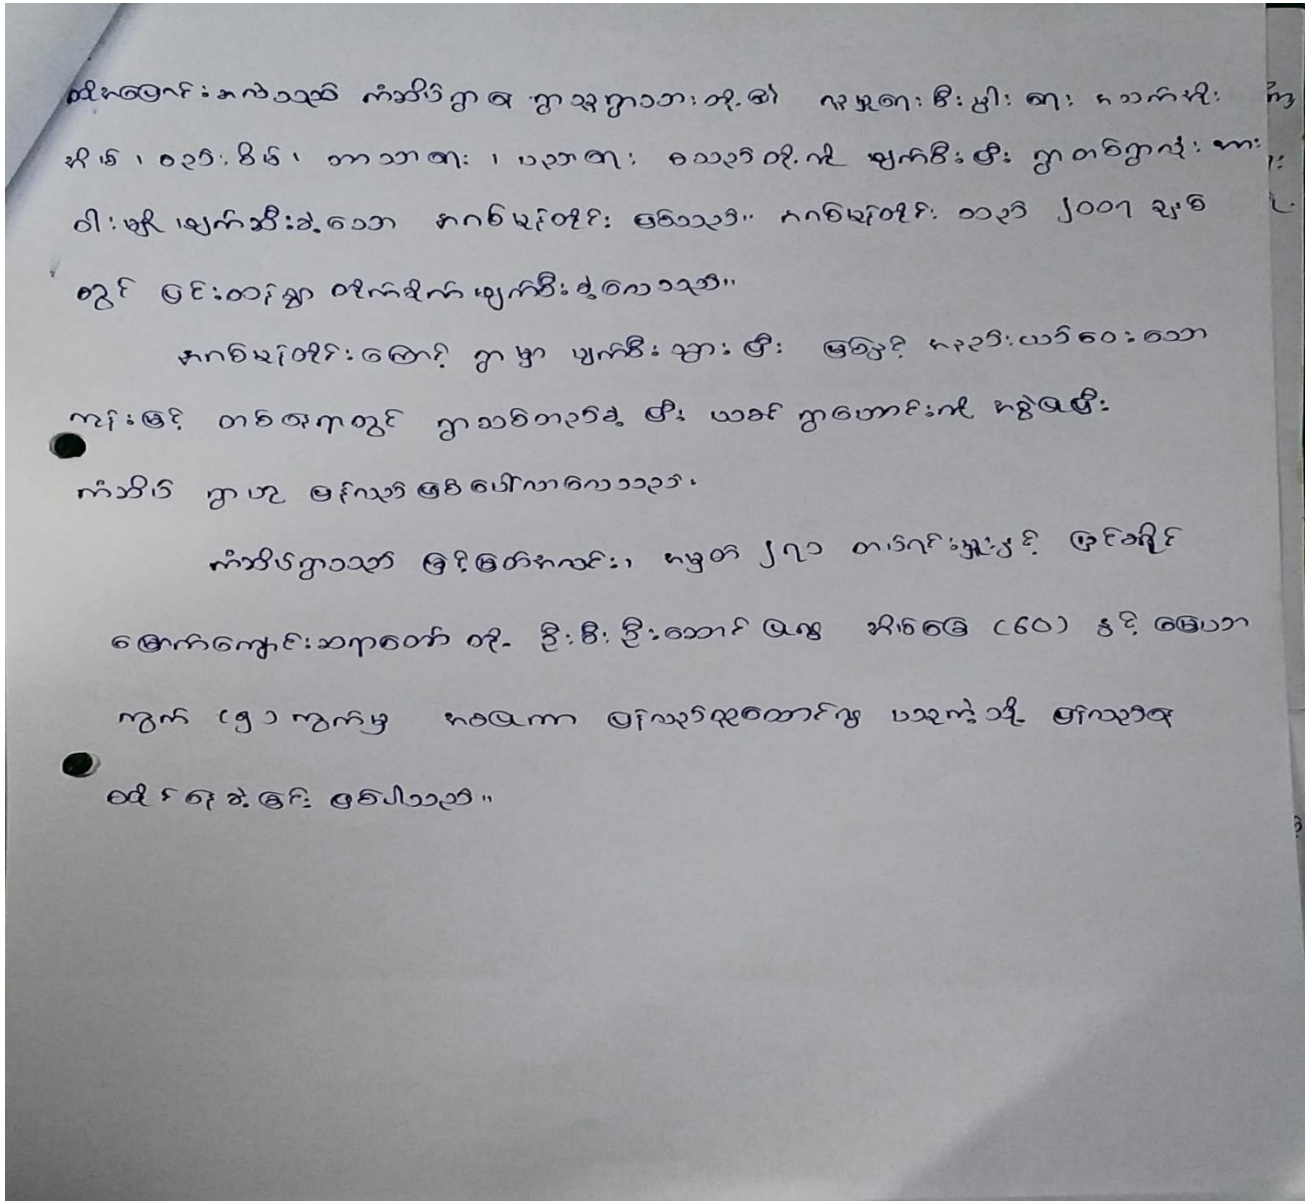 ထိုအပြောင်းအလဲသည် ကံဘိပ်ရွာရှိ ရွာသူရွာသားတို့၏ လူမှုရေး စီးပွါးရေး အသက်အိုး
အိုးအိမ်၊ စည်းစိမ်၊ ဘာသာရေး၊ ပညာရေး စသည်တို့ကို ပျက်စီးပြီး ရွာတစ်ရွာလုံး
ဝါးမျို ဖျက်ဆီးခဲ့သော နာဂစ်မုန်တိုင်း ဖြစ်သည်။ နာဂစ်မုန်တိုင်း သည် ၂၀၀၇ ခုနှစ်
တွင် ပြင်းထန်စွာ တိုက်ခိုက် ဖျက်စီးခဲ့လေသည်။
နာဂစ်မုန်တိုင်းကြောင့် ရွာမှာ ပျက်စီးသွားပြီး ဖြစ်၍ အနည်းယင်ဝေးသော
ကုန်းမြင့် တစ်နေရာတွင် ရွာသစ်တည်ခဲ့ပြီး ယခင် ရွာဟောင်းကို အစွဲပြုပြီး
ကံဘိပ် ရွာဟု ပြန်လည် ဖြစ်ပေါ်လာလေသည်။
ကံဘိပ်ရွာသည် မြင့်မြတ်အလင်း၊ အမှတ် ၂၇၁ တပ်ရင်းမှူးနှင့် မြင်းခိုင်
မြောက်ကျောင်းဆရာတော် တို့ ဦးစီး ဦးဆောင် ပြု၍ အိမ်ခြေ (၆၀) နှင့် မြေပသ
ကွက် (၅) ကွက်မှ အစပြုကာ ပြန်လည်ထူထောင်၍ ယခုကဲ့သို့ ပြန်လည်
ထိုင်ရှုခဲ့ခြင်း ဖြစ်ပါသည်။